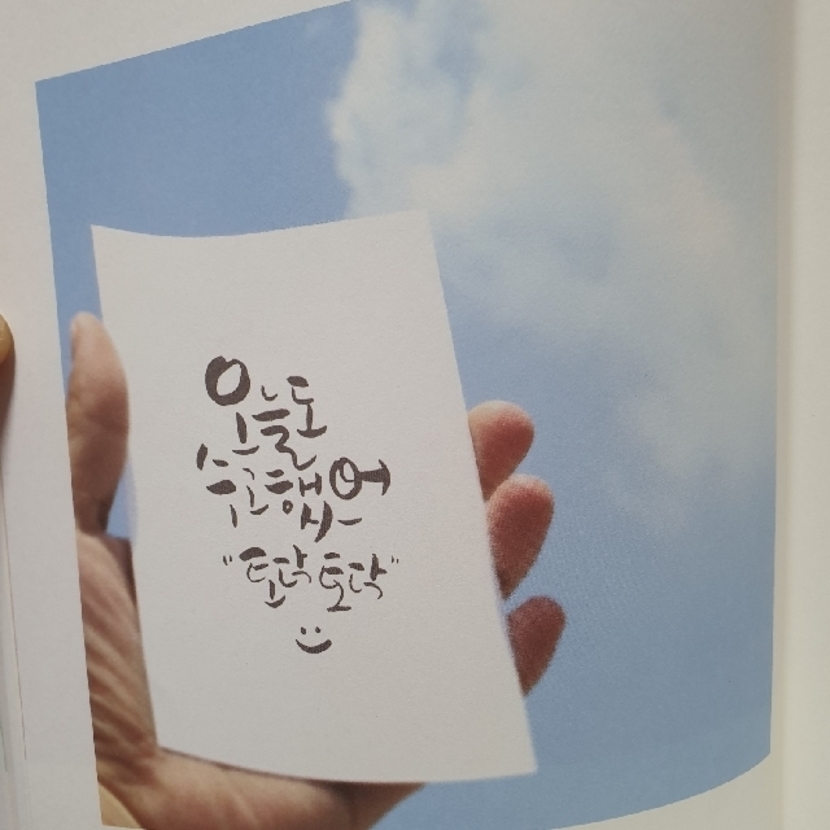 오늘도
수고했어
"토닥토닥"